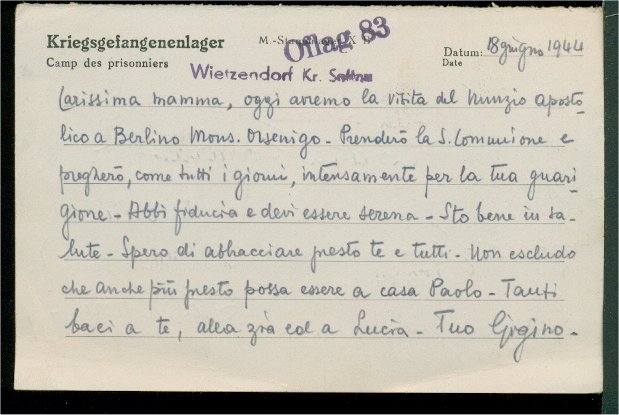 Kriegsgefangenenlager
Camp des prisonniers
M.-Stammlager X
Oflag 83
Wietzendorf Kr. Soltau
Datum: 18 giugno 1944
Date
Carissima mamma, oggi avremo la visita del Nunzio aposto-
lico a Berlino Mons. Orsenigo - Prenderò la S. Comunione e
pregherò, come tutti i giorni, intensamente per la tua guari-
gione - Abbi fiducia e devi essere serena - Sto bene in sa-
lute - Spero di abbracciare presto te e tutti - Non escludo
che anche più presto possa essere a casa Paolo - Tanti
baci a te, alla zia ed a Lucia - Tuo